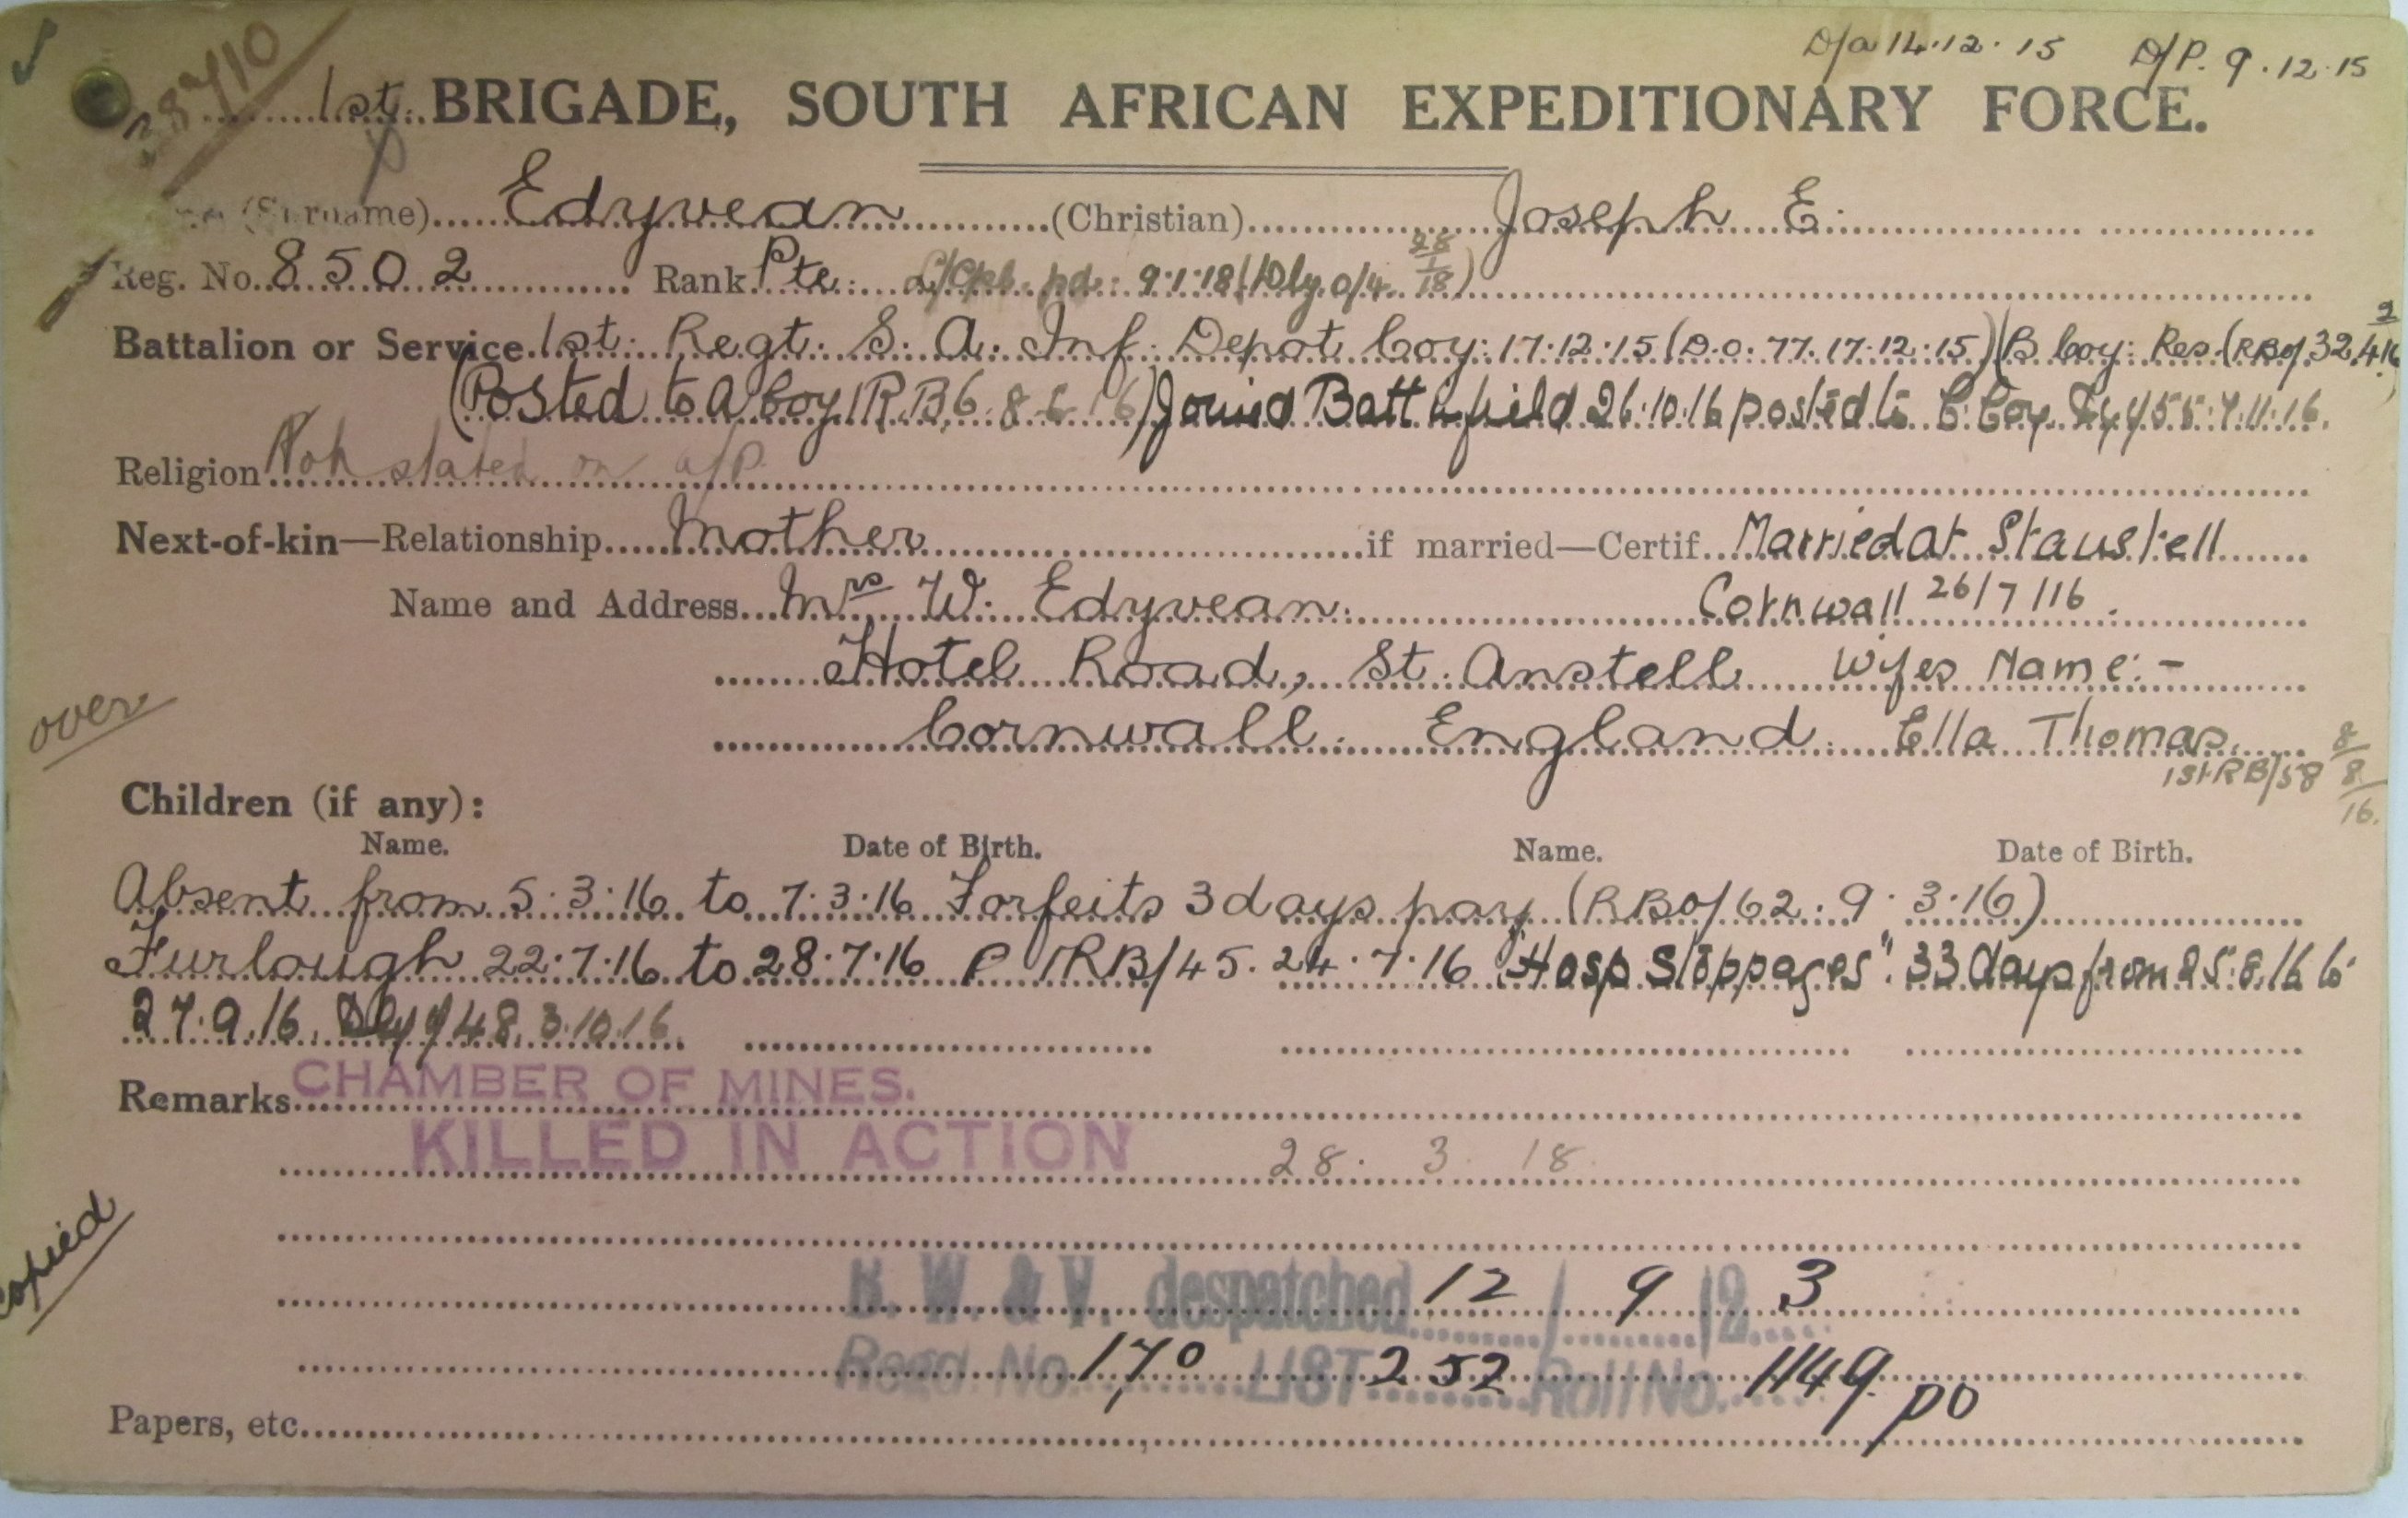 38710
D/a 14.12.15 D/P. 9.12.15
1st. BRIGADE, SOUTH AFRICAN EXPEDITIONARY FORCE.
(Surname) Edyvean (Christian) Joseph E.
Reg. No. 8502 Rank Pte. L/Cpl. pd. 9.1.18 (Dly o/4 28/1/18)
Battalion or Service 1st. Regt. S. A. Inf. Depot Coy: 17.12.15 (D.O. 77. 17.12.15) (B Coy: Res. (RBO/32 2.4.16)
(Posted to A Coy 1RB6. 8.6.16) Joined Batt in field 26.10.16 posted to C. Coy. 55. 7.11.16.
Religion Not stated on a/P.
Next-of-kin—Relationship Mother if married—Certif. Married at Staustell
Name and Address Mrs W. Edyvean. Cornwall 26/7/16.
Hotel Road, St. Anstell Wifes Name:-
over
Cornwall. England. Ella Thomas.
1st RB/58 8/8/16.
Children (if any):
Name. Date of Birth. Name. Date of Birth.
Absent from 5.3.16 to 7.3.16 Forfeits 3 days pay (RBO/62. 9.3.16)
Furlough 22.7.16 to 28.7.16 P 1RB/45. 24.7.16 "Hosp Stoppages". 33 days from 25.8.16 to
27.9.16. 48. 3.10.16.
Remarks CHAMBER OF MINES.
KILLED IN ACTION 28. 3. 18.
copied
B. W. & V. despatched 12 / 9 / 2 3
Regd. No. 170 LIST 252 Roll No. 1149. po
Papers, etc.